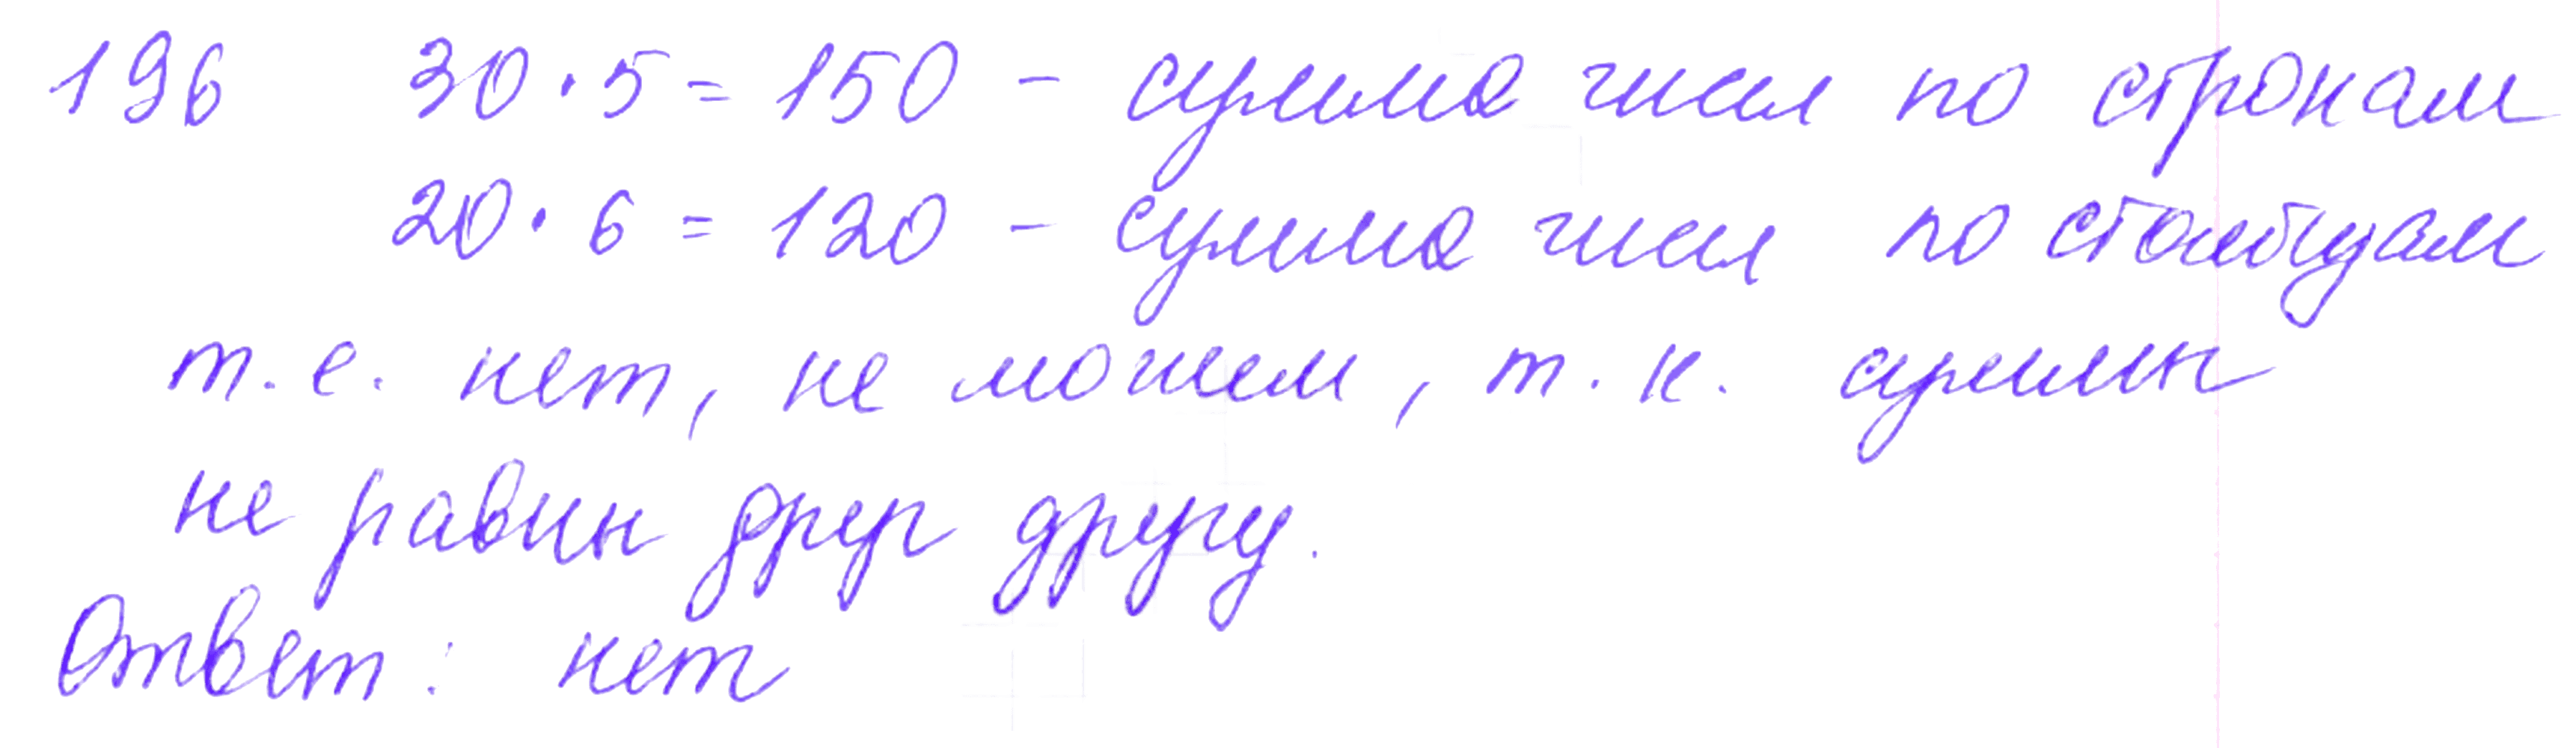 196 30 · 5 = 150 - сумма чисел по строкам
20 · 6 = 120 - сумма чисел по столбцам
т. е. нет, не может, т. к. суммы
не равны друг другу.
Ответ: нет